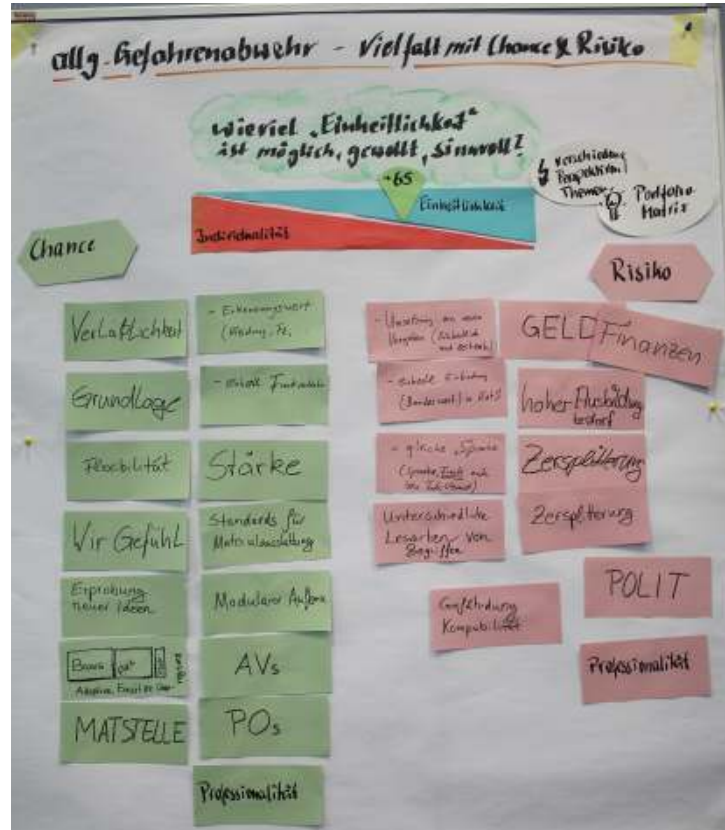 allg. Gefahrenabwehr - Vielfalt mit Chance & Risiko
wieviel „Einheitlichkeit"
ist möglich, gewollt, sinnvoll?
65
Einheitlichkeit
Individualität
verschiedene
Perspektiven/
Themen
Portfolio
Matrix
Chance
Verläßlichkeit
Grundlage
Flexibilität
Wir Gefühl
Erprobung
neuer Ideen
Basis
MATSTELLE
- Erkennungswert
(Kleidung, Fz.
- einheitl.
Stärke
Standards für
Materialausstattung
Modularer Aufbau
AVs
POs
Professionalität
Risiko
- Umsetzung von neuen
Vorgaben
(Bundesweit)
- gleiche „Sprache
Unterschiedliche
Lesarten von
Begriffen
Gefährdung
Kompatibilität
GELD
Finanzen
hoher Ausbildungs
bedarf
Zersplitterung
Zersplitterung
POLIT
Professionalität